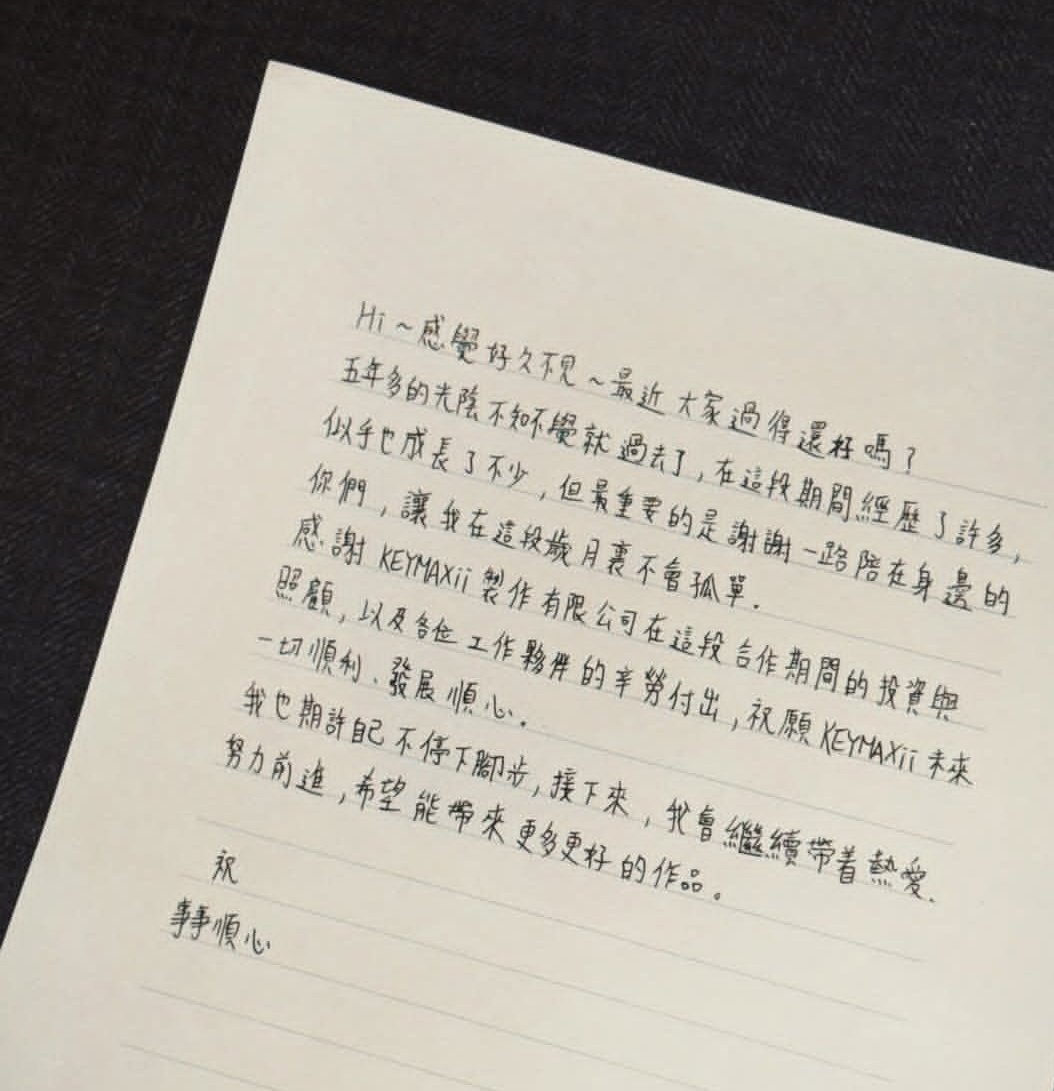 Hi ~ 感覺好久不見 ~ 最近大家過得還好嗎?
五年多的光陰不知不覺就過去了,在這段期間經歷了許多,
似乎也成長了不少,但最重要的是謝謝一路陪在身邊的
你們,讓我在這段歲月裏不會孤單.
感謝 KEYMAXii 製作有限公司在這段合作期間的投資與
照顧,以及各位工作夥伴的辛勞付出,祝願 KEYMAXii 未來
一切順利、發展順心。
我也期許自己不停下腳步,接下來,我會繼續帶着熱愛.
努力前進,希望能帶來更多更好的作品。
祝
事事順心